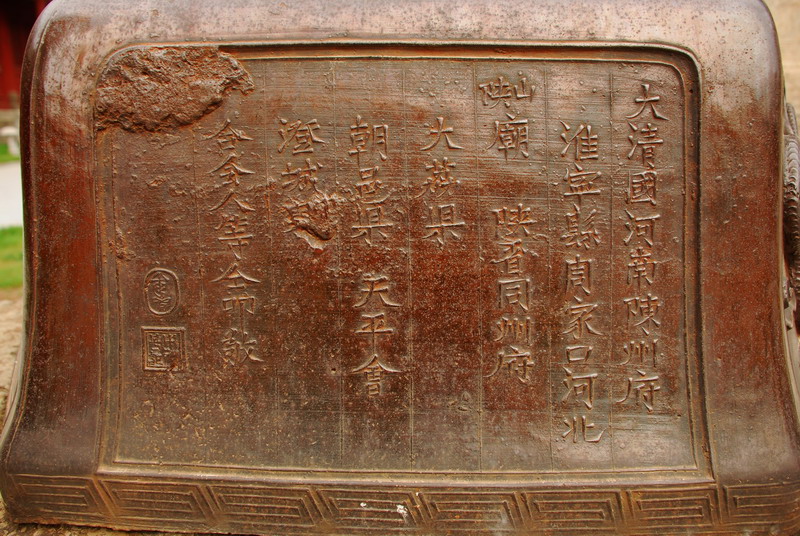 大清國河南陳州府
淮寧縣周家口河北
山陝廟 陝省同州府
大荔県
朝邑県 天平會
澄城県
合會人等仝叩敬